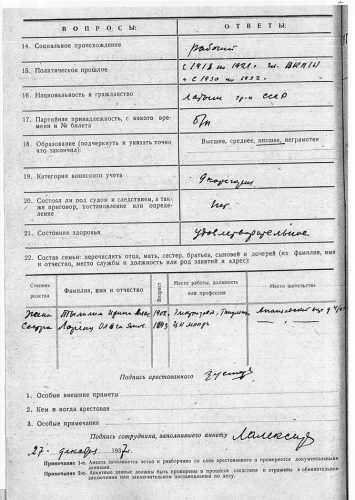 ВОПРОСЫ:
ОТВЕТЫ:
14. Социальное происхождение
рабочий
15. Политическое прошлое
с 1918 по 1921 г. чл. ВКП(б)
и с 1930 по 1932.
16. Национальность и гражданство
латыш гр-н СССР
17. Партийная принадлежность, с какого времени и № билета
б/п
18. Образование (подчеркнуть и указать точно что закончил):
Высшее, среднее, низшее, неграмотен
19. Категория воинского учета
20. Состоял ли под судом и следствием, а также приговор, постановление или определение
нет
21. Состояние здоровья
удовлетворительное
22. Состав семьи: перечислять отца, мать, сестер, братьев, сыновей и дочерей (их фамилия, имя и отчество, место службы и должность или род занятий и адрес):
Степень родства
Фамилия, имя и отчество
Возраст
Место работы, должность или профессия
Место жительства
Жена
Сестра
1893
Подпись арестованного
1. Особые внешние приметы
2. Кем и когда арестован
3. Особые примечания
Подпись сотрудника, заполнившего анкету
27. декабря 1937г.
Примечание 1-е. Анкета заполняется четко и разборчиво со слов арестованного и проверяется документальными данными.
Примечание 2-е. Анкетные данные должны быть проверены в процессе следствия и отражены в обвинительном заключении или заключительном постановлении по делу.